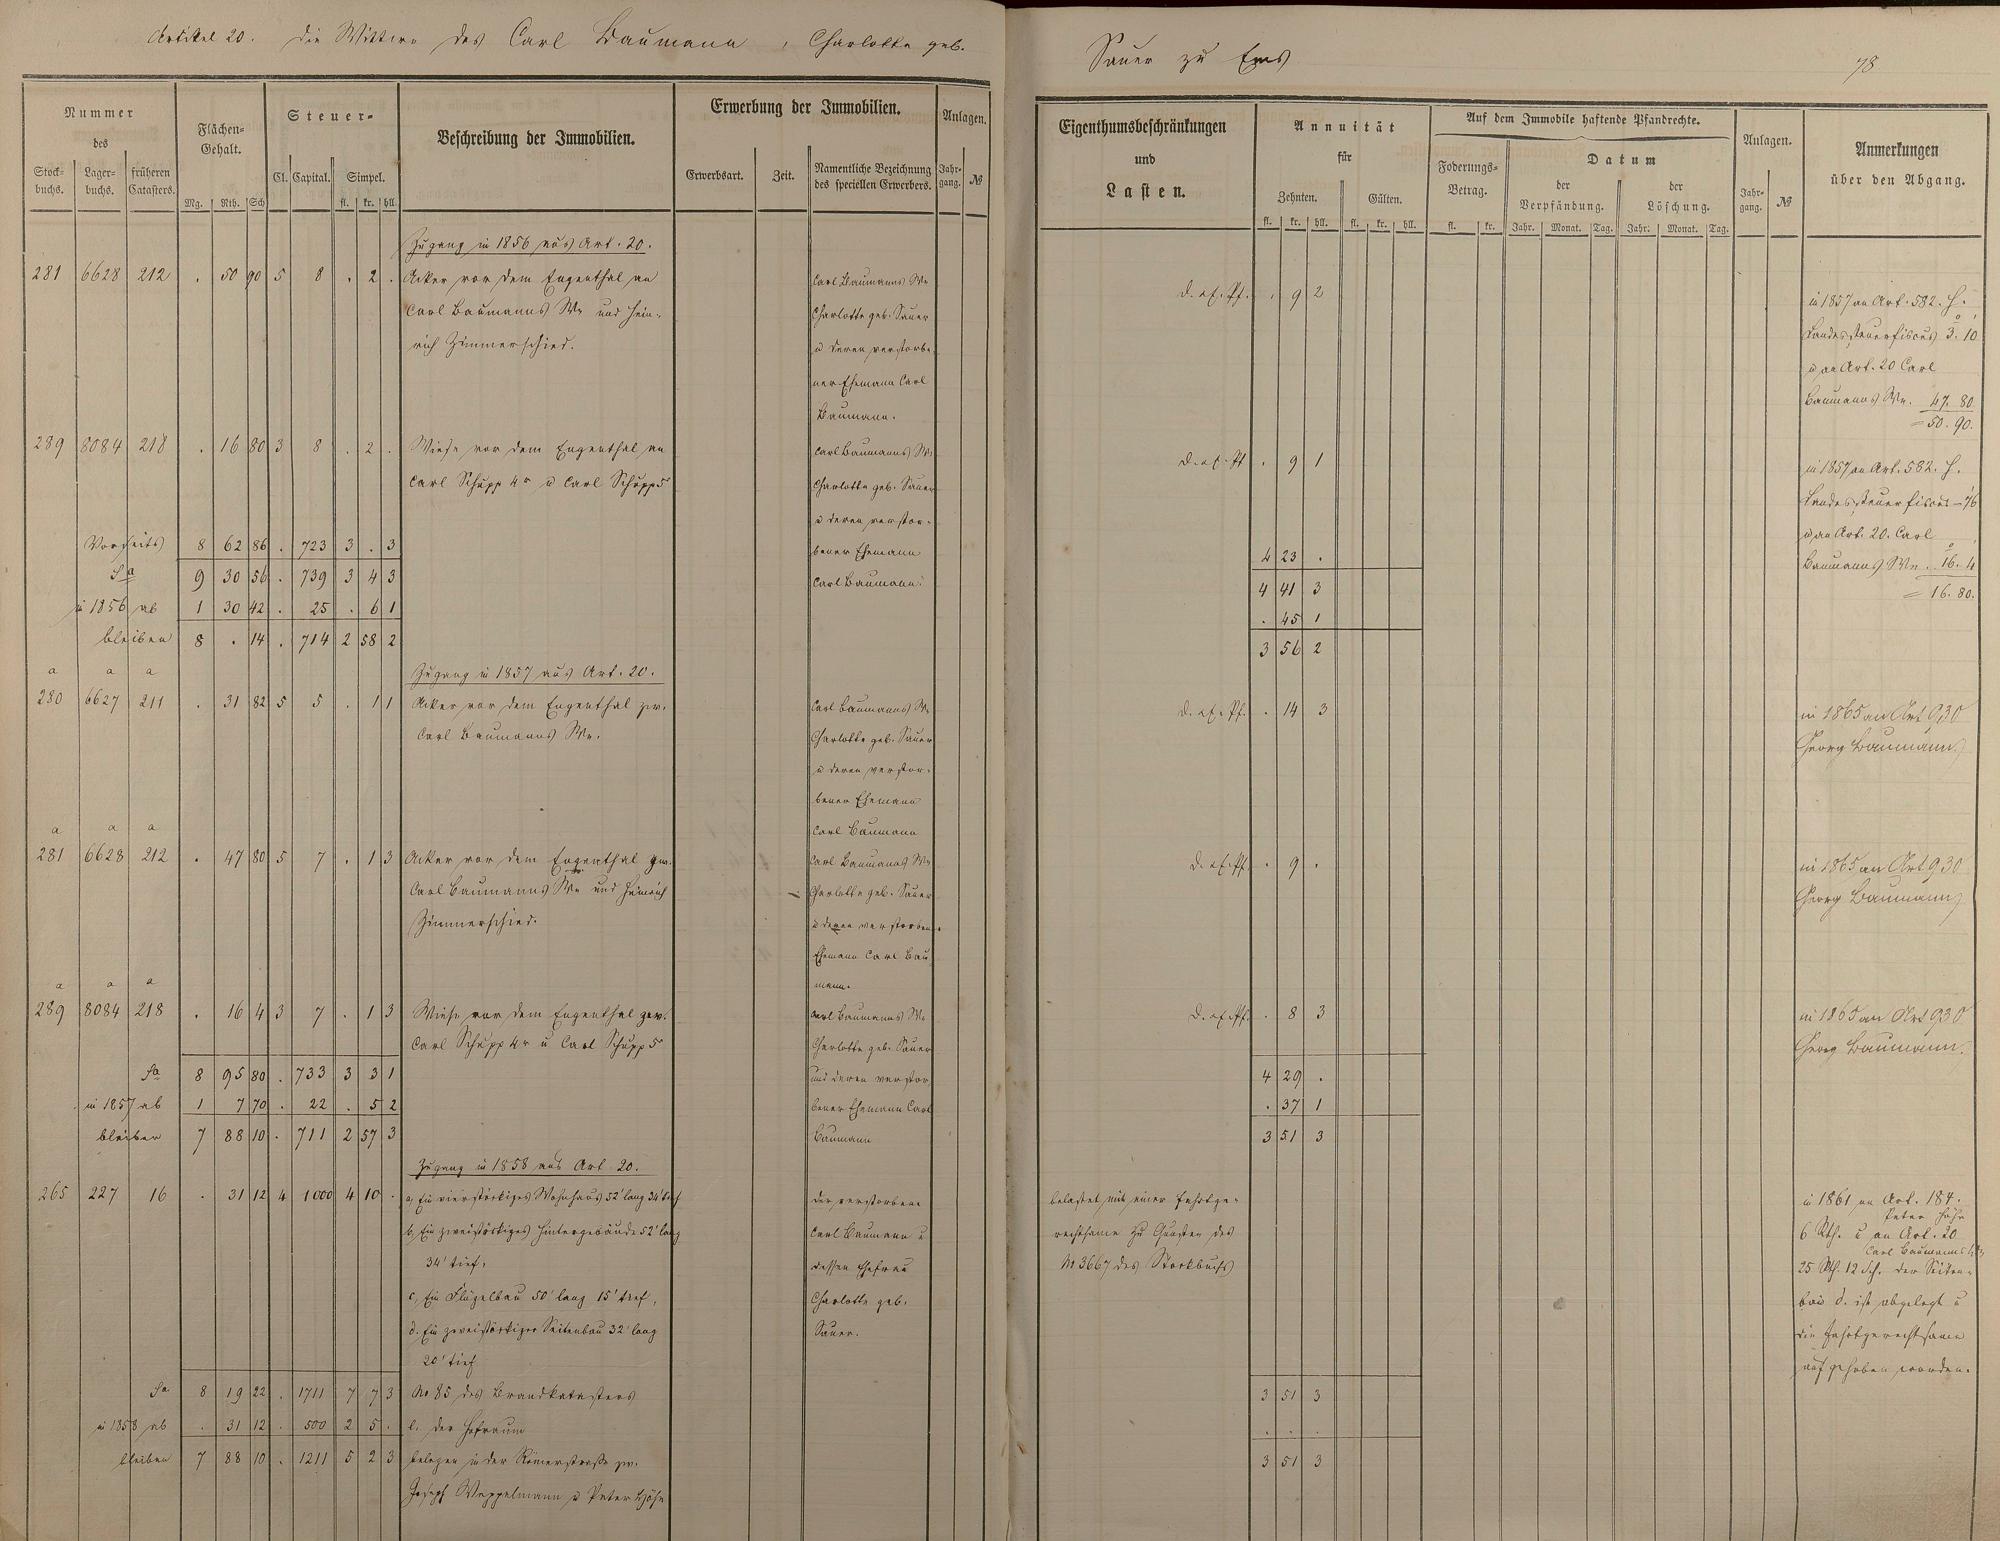 Artikel 20. Die Wittwe des Carl Baumann, Charlotte geb.
Sauer zu Ems
78
Nummer
des
Stock-
buchs.
Lager-
buchs.
früheren
Catasters.
Flächen-
Gehalt.
Mg. Rth. Sch
Steuer-
Cl. Capital. Simpel.
fl. kr. hll.
Beschreibung der Immobilien.
Erwerbung der Immobilien.
Erwerbsart. Zeit.
Namentliche Bezeichnung
des speciellen Erwerbers.
Anlagen.
Jahr-
gang.
№
Eigenthumsbeschränkungen
und
Lasten.
Annuität
für
Zehnten. Gülten.
fl. kr. hll. fl. kr. hll.
Auf dem Immobile haftende Pfandrechte.
Foderungs-
Betrag.
fl. kr.
Datum
der
Verpfändung.
der
Löschung.
Jahr. Monat. Tag. Jahr. Monat. Tag.
Anlagen.
Jahr-
gang.
№
Anmerkungen
über den Abgang.
Zugang in 1856 aus Art. 20.
281 6628 212 . 50 90 5 8 . 2 . Acker vor dem Engenthal an
Carl Baumanns We und Hein-
rich Zimmerschied.
Carl Baumanns We
Charlotte geb. Sauer
u deren verstorbe-
ner Ehemann Carl
Baumann.
. 9 2
in 1857 an Art. 582. H.
Landessteuerfiscus 3. 10
u an Art. 20 Carl
Baumanns We. 47. 80
= 50. 90.
289 8084 218 . 16 80 3 8 . 2 . Wiese vor dem Engenthal an
Carl Schupp 4r u Carl Schupp 5r
Carl Baumanns We
Charlotte geb. Sauer
u deren verstor-
bener Ehemann
Carl Baumann.
. 9 1
in 1857 an Art. 582. H.
Landessteuerfiscus - 76
u an Art. 20. Carl
Baumanns We. 16. 4
= 16. 80.
Vorseits 8 62 86 . 723 3 . 3
4 23 .
Sa 9 30 56 . 739 3 4 3
4 41 3
in 1856 ab 1 30 42 . 25 . 6 1
. 45 1
bleiben 8 . 14 . 714 2 58 2
3 56 2
Zugang in 1857 aus Art. 20.
a a a
280 6627 211 . 31 82 5 5 . 1 1 Acker vor dem Engenthal zw.
Carl Baumanns We.
Carl Baumanns We
Charlotte geb. Sauer
u deren verstor-
bener Ehemann
Carl Baumann
. 14 3
in 1865 an Art 930
Georg Baumann
a a a
281 6628 212 . 47 80 5 7 . 1 3 Acker vor dem Engenthal zw.
Carl Baumanns We und Heinrich
Zimmerschied.
Carl Baumanns We
Charlotte geb. Sauer
u deren verstorbener
Ehemann Carl Bau-
mann.
. 9 .
in 1865 an Art 930
Georg Baumann
a a a
289 8084 218 . 16 4 3 7 . 1 3 Wiese vor dem Engenthal zw.
Carl Schupp 4r u Carl Schupp 5r
Carl Baumanns We
Charlotte geb. Sauer
und deren verstor-
bener Ehemann Carl
Baumann
. 8 3
in 1865 an Art 930
Georg Baumann.
Sa 8 95 80 . 733 3 3 1
4 29 .
in 1857 ab 1 7 70 . 22 . 5 2
. 37 1
bleiben 7 88 10 . 711 2 57 3
3 51 3
Zugang in 1858 aus Art. 20.
265 227 16 . 31 12 4 1000 4 10 . a, Ein vierstöckiges Wohnhaus 52' lang 34' tief
b, Ein zweistöckiges Hintergebäude 52' lang
34' tief,
c, Ein Flügelbau 50' lang 15' tief,
d. Ein zweistöckiger Seitenbau 32' lang
20' tief
No 85 des Brandkatasters
e. Der Hofraum
belegen in der Römerstraße zw.
Joseph Weppelmann u Peter Höhn
Der verstorbene
Carl Baumann u
dessen Ehefrau
Charlotte geb.
Sauer.
belastet mit einer Fahrtge-
rechtsame zu Gunsten des
No 3667 des Stockbuchs
in 1861 an Art. 184.
Peter Höhn
6 Rth. u an Art. 20
Carl Baumanns We
25 Rth. 12 Sch. der Seiten-
bau d. ist abgelegt u
die Fahrtgerechtsame
aufgehoben worden.
Sa 8 19 22 . 1711 7 7 3
3 51 3
in 1858 ab . 31 12 . 500 2 5 .
. . .
bleiben 7 88 10 . 1211 5 2 3
3 51 3